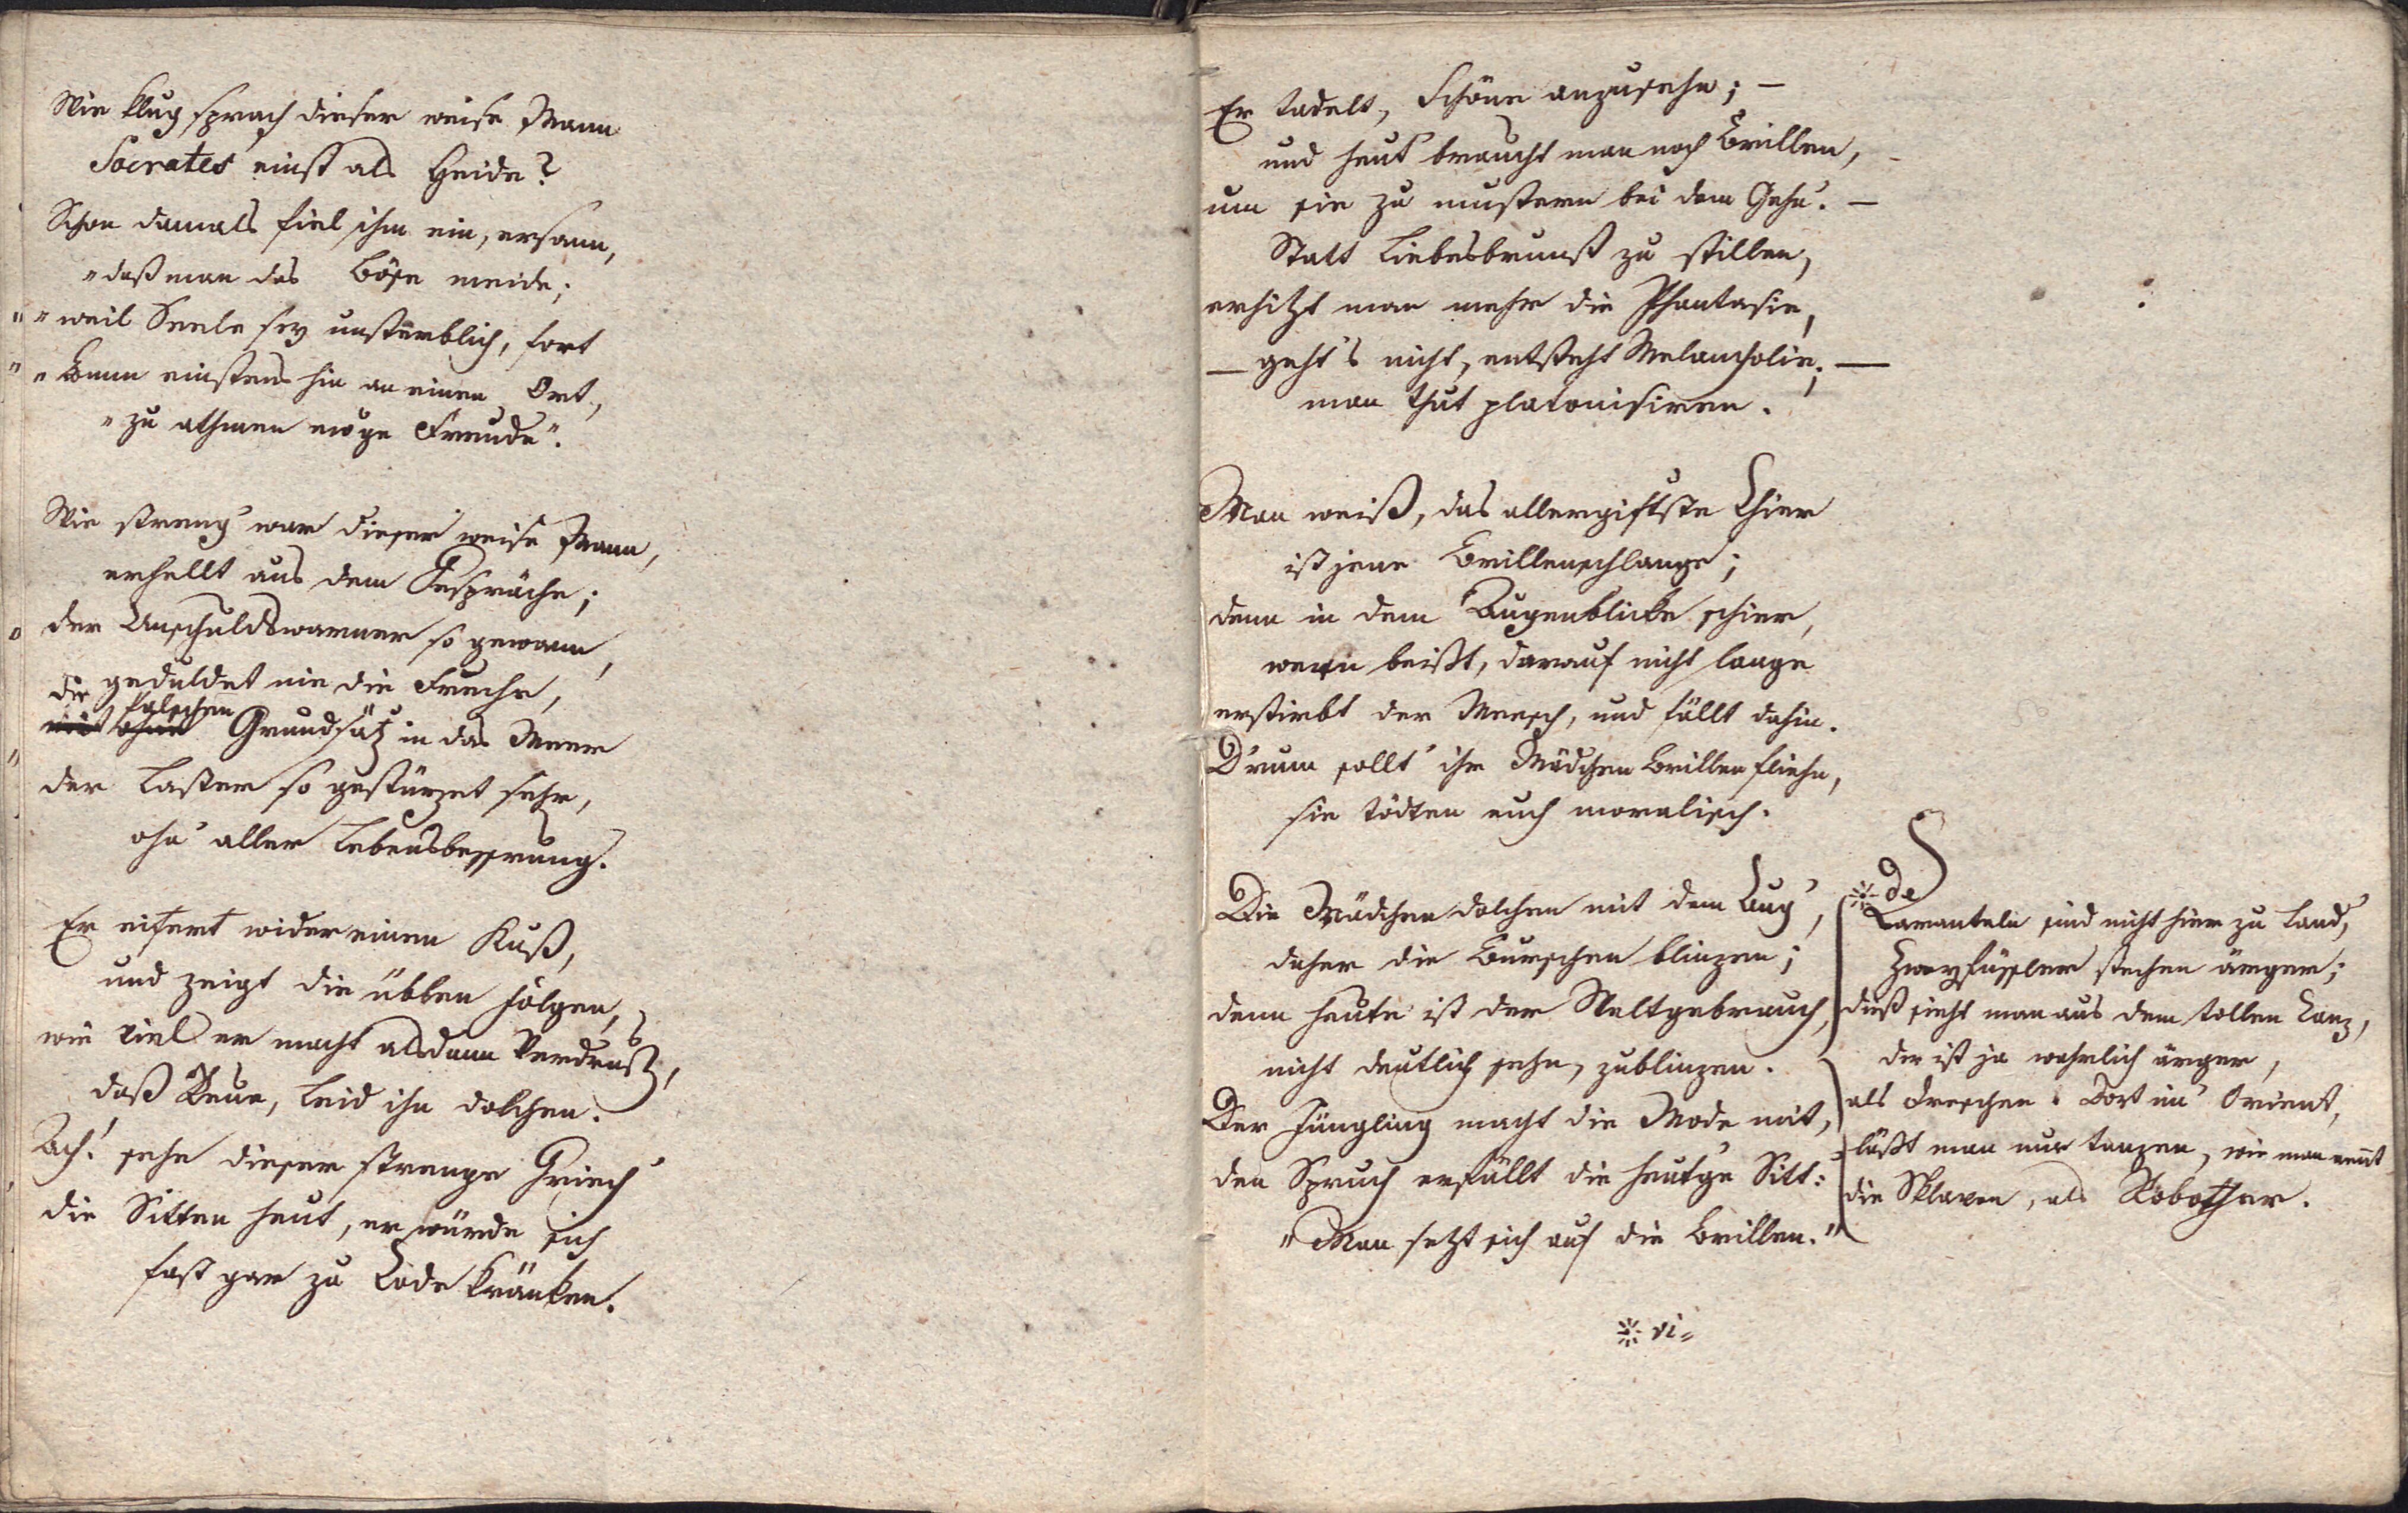 Wie klug sprach dieser weise Mann
Socrates einst als Heide?
Schon damals fiel ihm ein, ersann,
„daß man das Böse meide;
„„weil Seele sey unsterblich, fort
„„komm einstens hin an einen Ort,
„zu athmen ewge Freude“.
Wie streng war dieser weise Mann,
erhellt aus dem Gespräche;
der Unschuldswarner so gewann,
geduldet nie die Freche,
die falschen
mit ohne Grundsätz in das Meer
der Laster so gestürzet sehr,
ohn' aller Lebensbesserung.
Er eifert wider einen Kuß,
und zeigt die üblen Folgen,
wie viel er macht alsdann Verdruß,
daß Reue, Leid ihn dolchen.
Ach! sehe dieser strenge Griech'
die Sitten heut, er würde sich
fast gar zu Tode kränken.
Er tadelt, Schöne anzusehn; —
und heut braucht man noch Brillen,
um sie zu mustern bei dem Gehn. —
Statt Liebesbrunst zu stillen,
erhitzt man mehr die Phantasie,
— geht's nicht, entsteht Melancholie; —
man thut platonisiren.
Man weiß, das allergiftste Thier
ist jene Brillenschlange;
denn in dem Augenblicke schier,
wenn beißt, darauf nicht lange
erstirbt der Mensch, und fällt dahin.
D'rum sollt' ihr Mädchen Brillen fliehn,
sie tödten euch moralisch.
Die Mädchen dolchen mit dem Aug',
daher die Burschen blinzen;
denn heute ist der Weltgebrauch,
nicht deutlich sehn, zublinzen.
Der Jüngling macht die Mode mit,
den Spruch erfüllt die heut'ge Sitt:
„Man setzt sich auf die Brillen.“
※ vi=
※ de
Taranteln sind nicht hier zu Land,
Zweyfüssler stechen ärger;
dieß sieht man aus dem tollen Tanz,
der ist ja wahrlich ärger,
als Dreschen. Dort im Orient,
läßt man nur tanzen, wie man nennt
die Sklaven, als Robother.